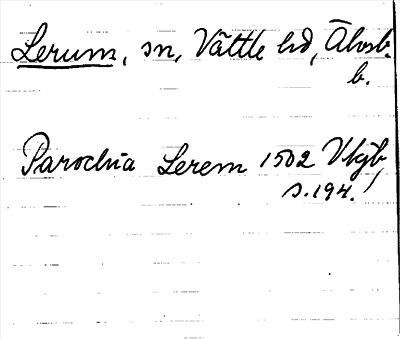 Lerum, sn, Vättle hd, Älvsb.
b.
Parochia Lerem 1502 Vkjb,
s. 194.